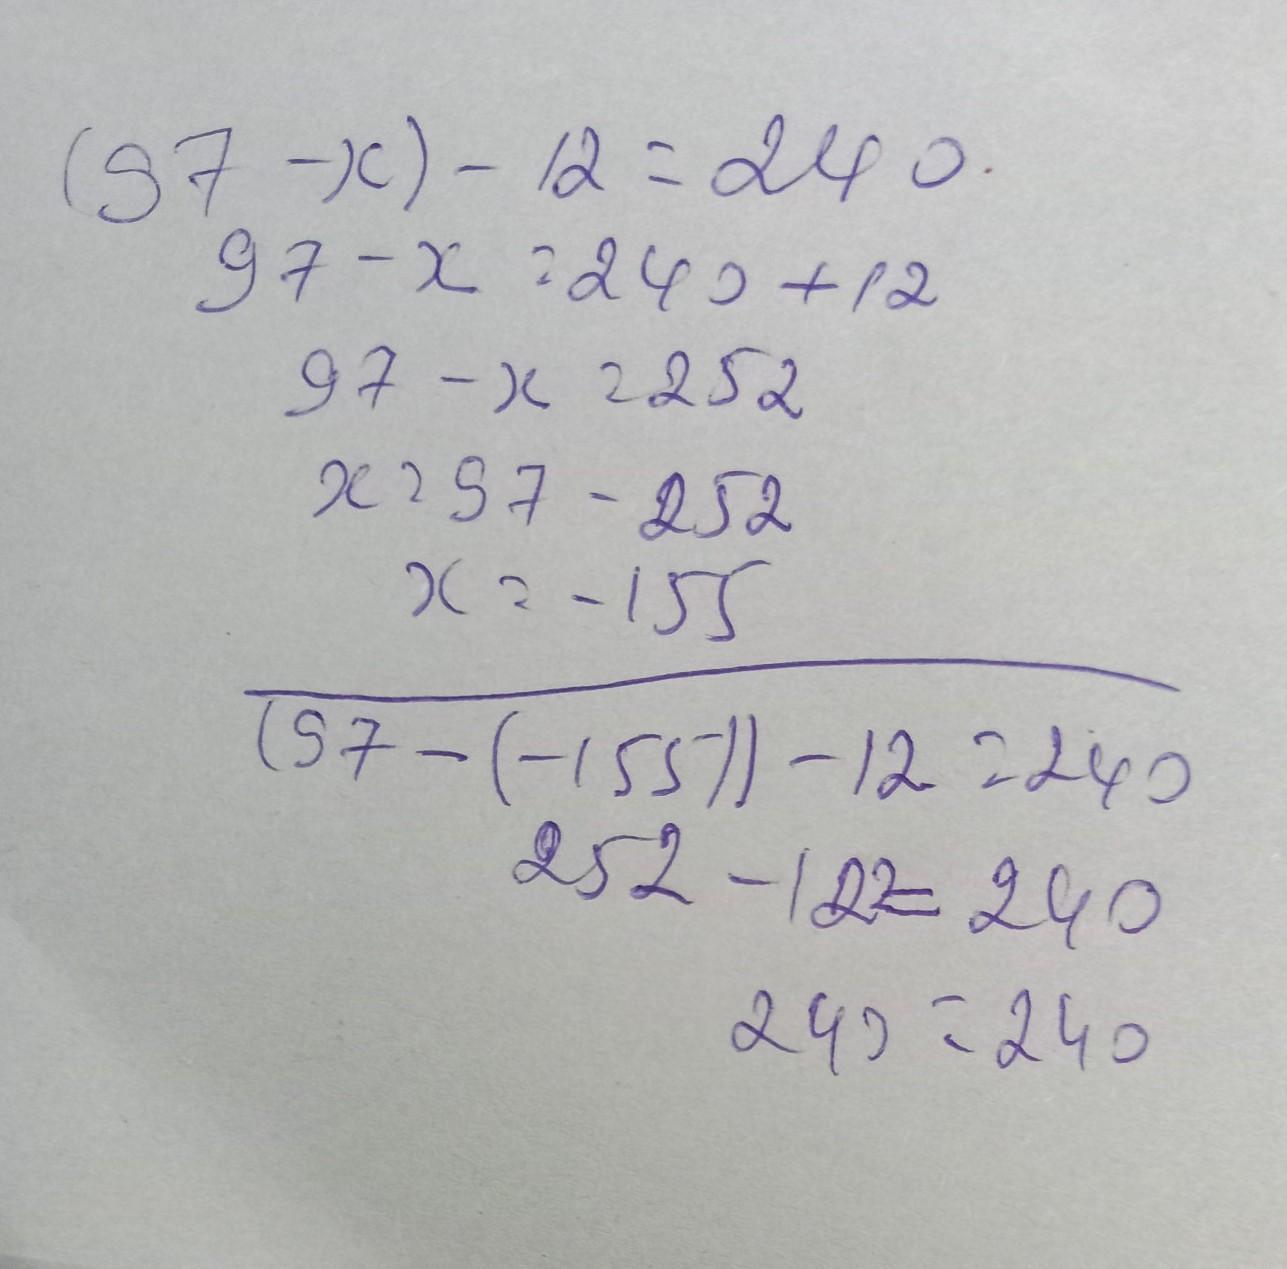 (97 - x) - 12 = 240.
97 - x = 240 + 12
97 - x = 252
x = 97 - 252
x = -155
(97 - (-155)) - 12 = 240
252 - 12 = 240
240 = 240